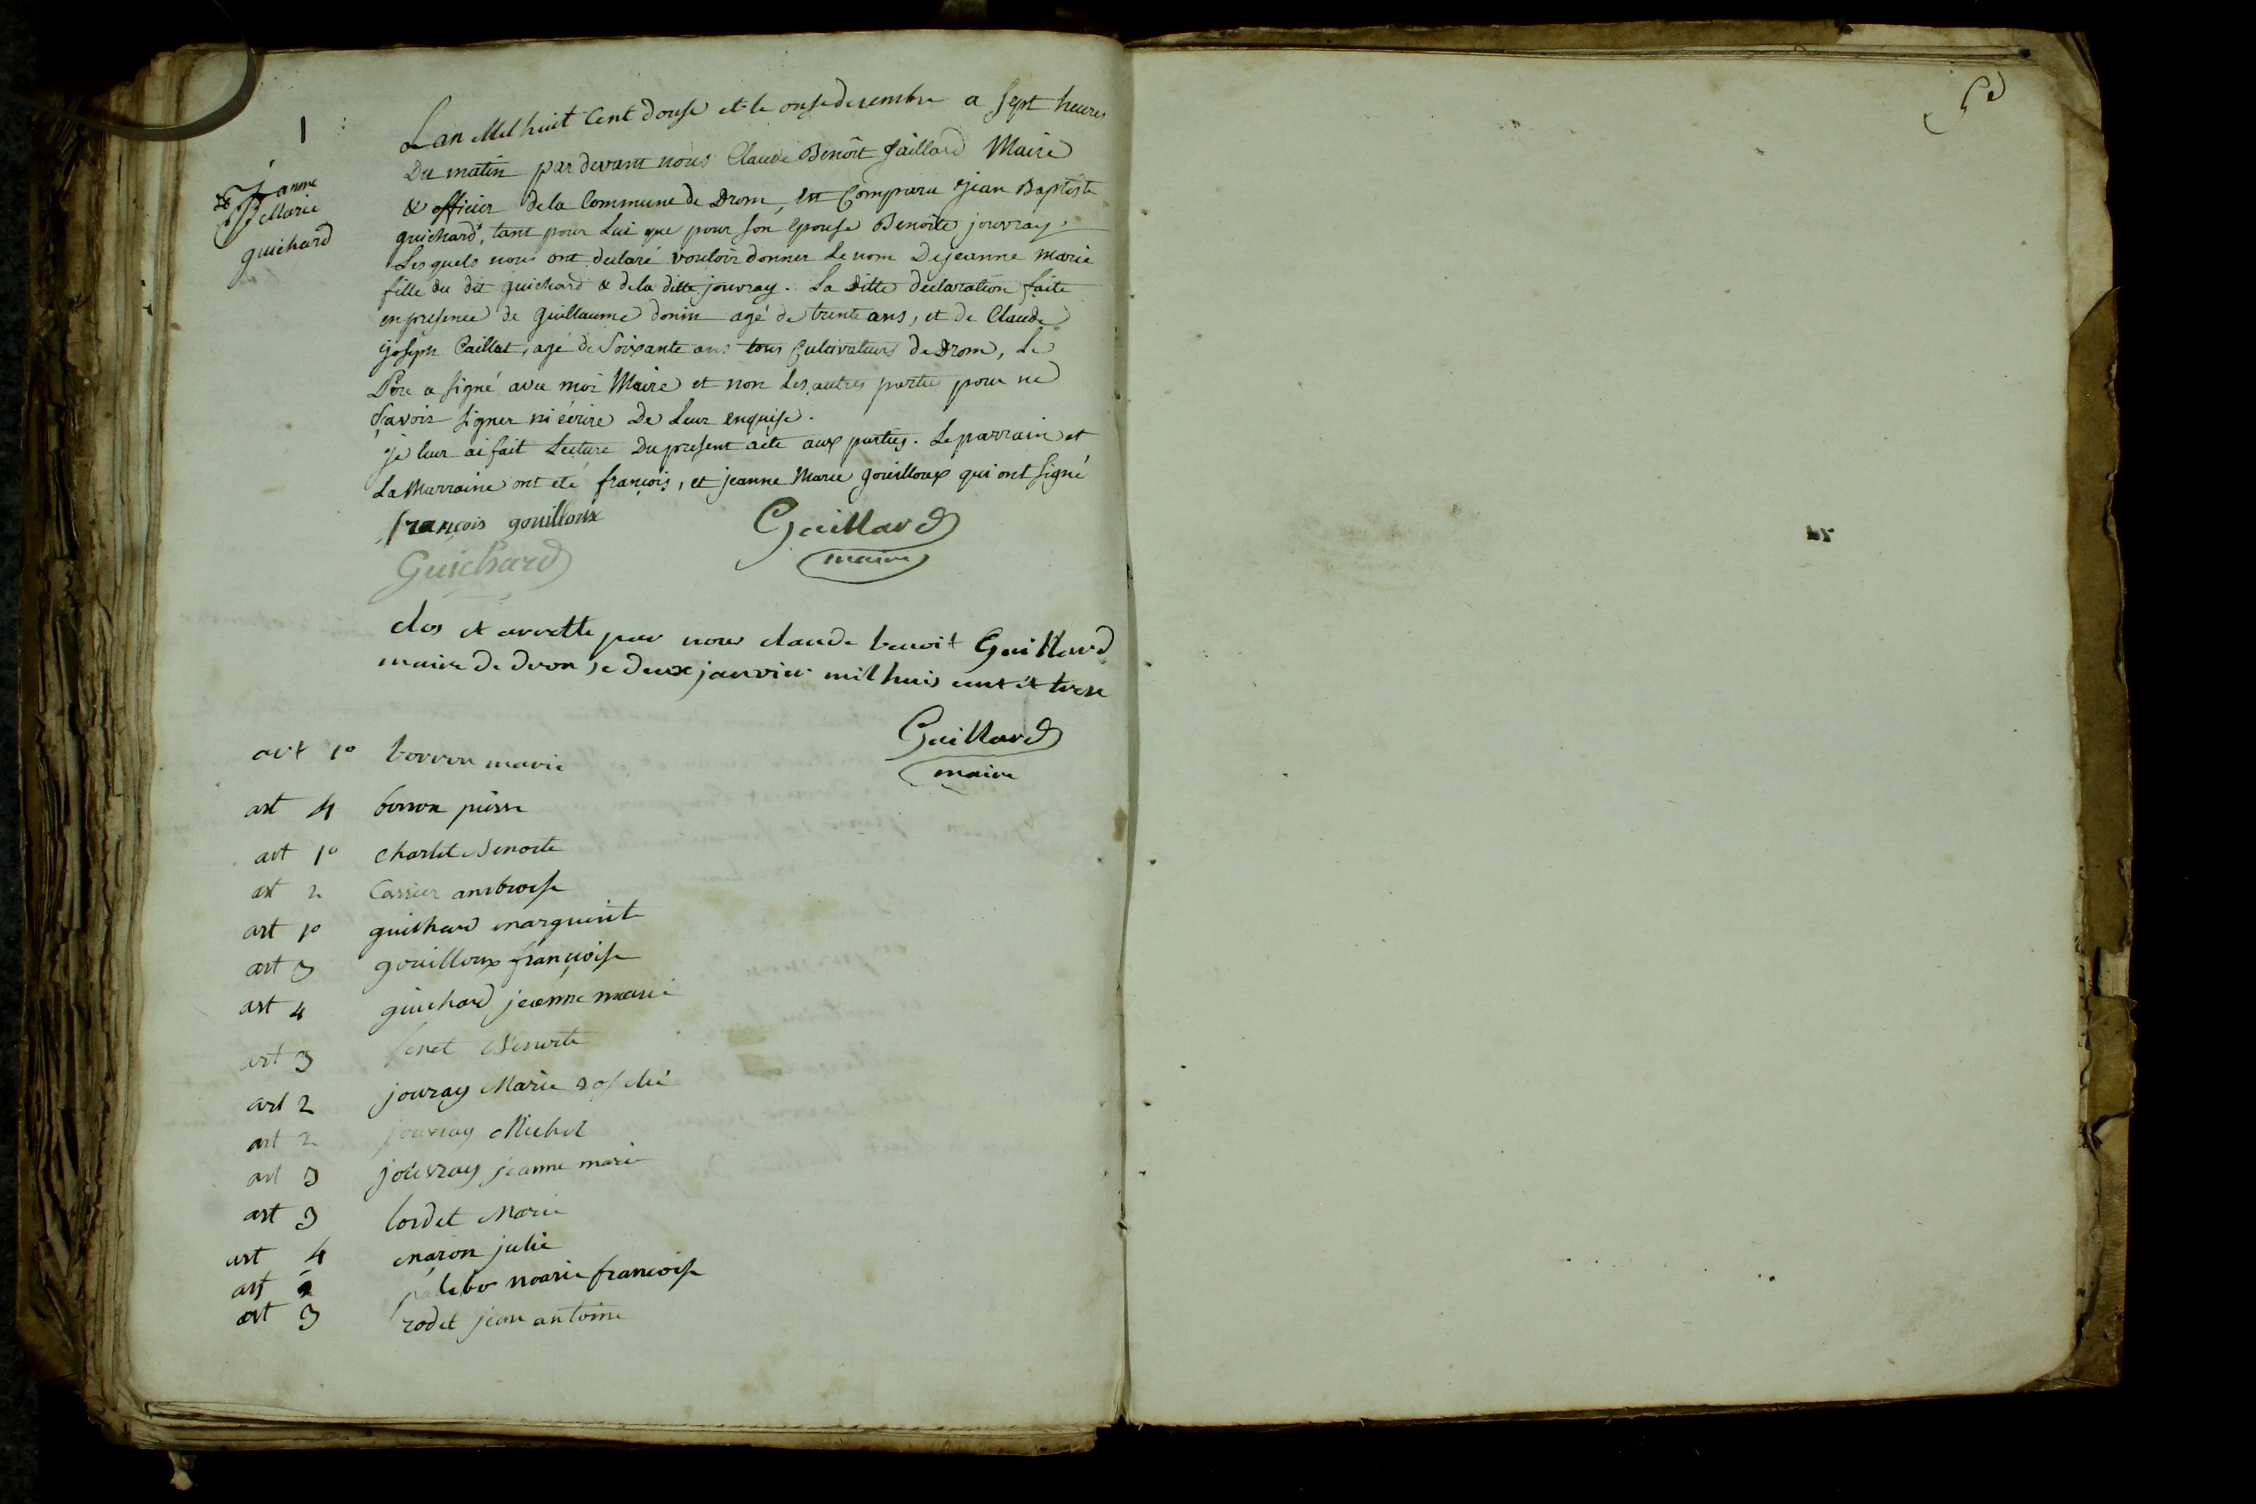 1
Lan Mil huit Cent douse et le onse desembre a sept heures
Du matin par devant nous Claude Benoît gaillard Maire
& officier de la Commune de Drom, est Comparu jean Baptiste
guichard, tant pour Lui que pour son Epouse Benoîte jouvray.
Les quels nous ont declaré vouloir donner Le nom De jeanne Marie
fille du dit guichard & de la ditte jouvray. La ditte declaration faite
en presence de guillaume donin agé de trente ans, et de Claude
joseph Caillat, agé de Soixante ans tous Cultivateurs de Drom, Le
Père a signé avec moi Maire et non Les autres partie pour ne
savoir signer ni écrire De Leur enquise.
je leur ai fait Lecture Du present acte aux parties. Le parrain et
La Marraine ont eté françois, et jeanne Marie gouilloux qui ont signé
jeanne
Marie
guichard
françois gouilloux
Gaillard
maire
Guichard
clos et arretté par nous claude benoit Gaillard
maire de dron, le deux janvier mil huis cent et trese
Gaillard
maire
art 1o borron marie
art 4 borron pierre
art 1o charlet Benoite
art 2 Carrier ambroise
art 1o guichard marguerite
art 3 gouilloux françoise
art 4 guichard jeanne marie
art 3 Benoite
art 2 jouray Marie
art 2 jouvray Michel
art 3 jouvray jeanne marie
art 3 lordet Marie
art 4 maron julie
art 2 marie françoise
art 3 rodet jean antoine